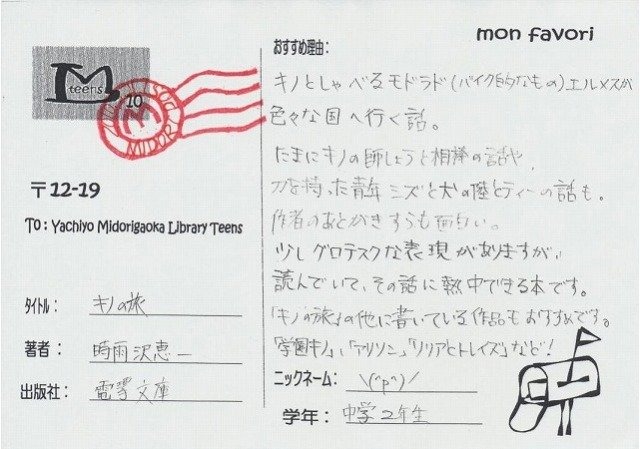 mon favori
M
teens
10
MIDORI
〒12-19
To : Yachiyo Midorigaoka Library Teens
タイトル： キノの旅
著者： 時雨沢恵一
出版社： 電撃文庫
おすすめ理由：
キノとしゃべるモトラド(バイク的なもの)エルメスが
色々な国へ行く話。
たまにキノの師しょうと相棒の話や、
刀を持った青年シズと犬の陸とティーの話も。
作者のあとがきすらも面白い。
少しグロテスクな表現がありますが、
読んでいて、その話に熱中できる本です。
「キノの旅」の他に書いている作品もおすすめです。
「学園キノ」、「アリソン」、「リリアとトレイズ」など！
ニックネーム： \(^p^)/
学年： 中学2年生